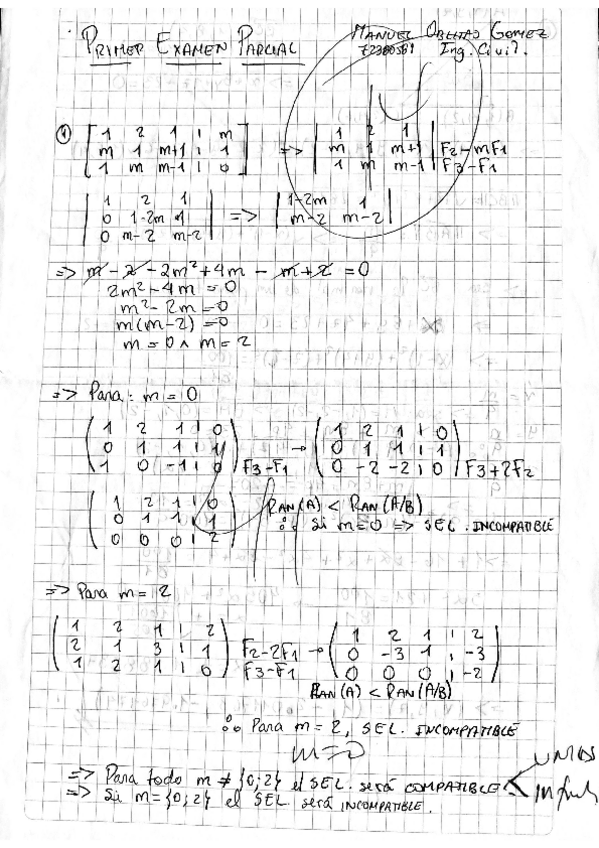 PRIMER EXAMEN PARCIAL
MANUEL OBLITAS GOMEZ
72380581 Ing. Civil.
① [ 1 2 1 | m ; m 1 m+1 | 1 ; 1 m m-1 | 0 ] => | 1 2 1 ; m 1 m+1 ; 1 m m-1 | F2-mF1 F3-F1
| 1 2 1 ; 0 1-2m 1 ; 0 m-2 m-2 | => | 1-2m 1 ; m-2 m-2 |
=> m - 2 - 2m² + 4m - m + 2 = 0
2m² - 4m = 0
m² - 2m = 0
m(m-2) = 0
m = 0 ∧ m = 2
=> Para: m = 0
( 1 2 1 | 0 ; 0 1 1 | 1 ; 1 0 -1 | 0 ) F3-F1 → ( 1 2 1 | 0 ; 0 1 1 | 1 ; 0 -2 -2 | 0 ) F3+2F2
( 1 2 1 | 0 ; 0 1 1 | 1 ; 0 0 0 | 2 ) RAN(A) < RAN(A/B)
∴ Si m=0 => SEL. INCOMPATIBLE
=> Para m = 2
( 1 2 1 | 2 ; 2 1 3 | 1 ; 1 2 1 | 0 ) F2-2F1 F3-F1 → ( 1 2 1 | 2 ; 0 -3 1 | -3 ; 0 0 0 | -2 )
RAN(A) < RAN(A/B)
∴ Para m = 2, SEL. INCOMPATIBLE
=> Para todo m ≠ {0;2} el SEL. será COMPATIBLE
=> Si m = {0;2} el SEL será INCOMPATIBLE.